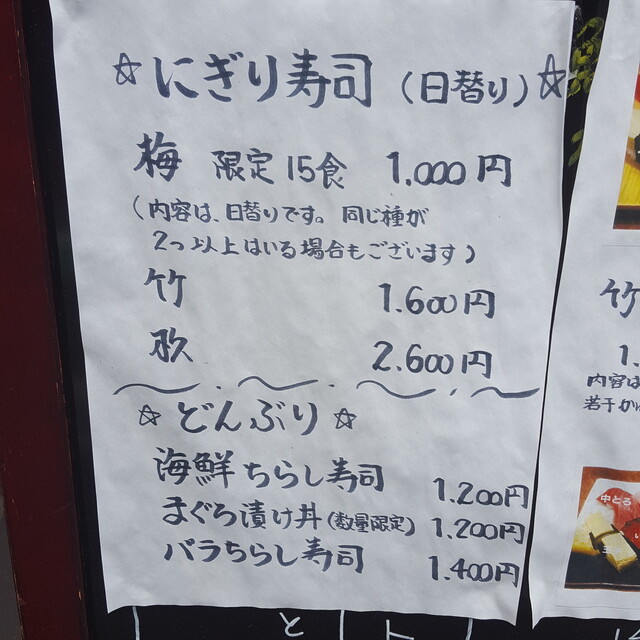 ☆にぎり寿司（日替り）☆
梅 限定15食 1.000円
（内容は、日替りです。同じ種が
2つ以上はいる場合もございます）
竹 1.600円
2.600円
☆どんぶり☆
海鮮ちらし寿司 1.200円
まぐろ漬け丼（数量限定） 1.200円
バラちらし寿司 1.400円
竹
1.
内容は
若干か
中とろ
と